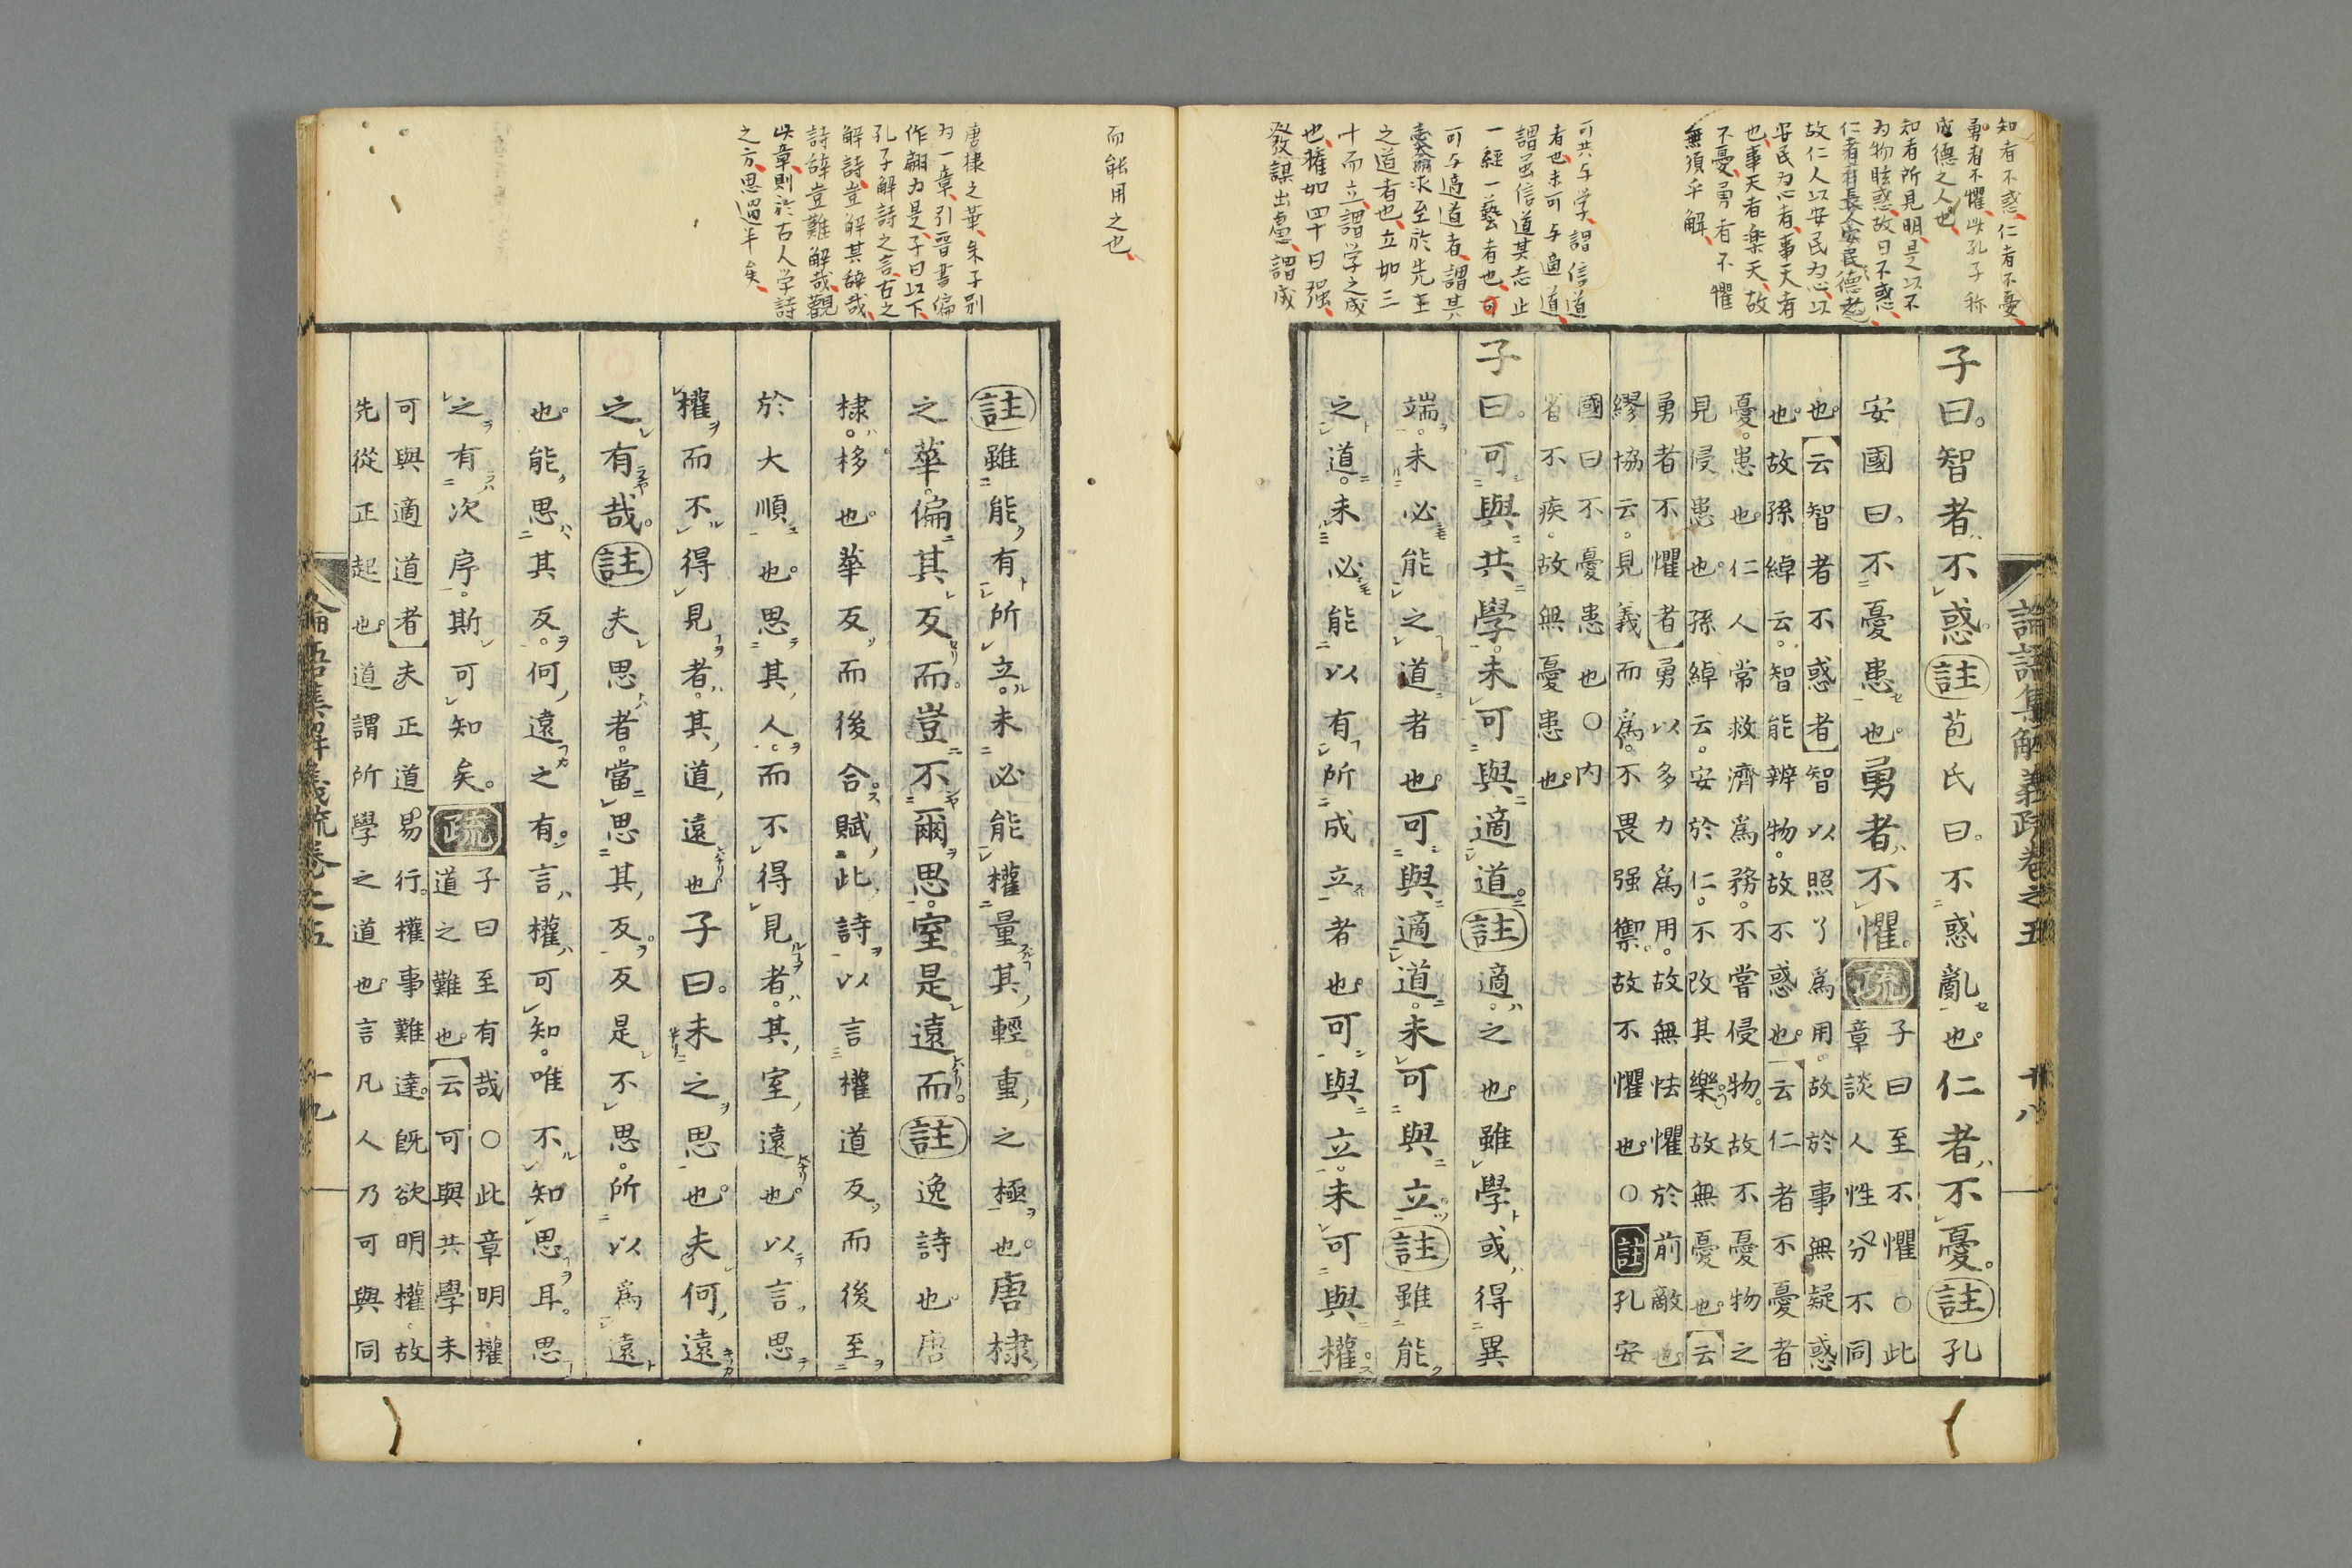 知者不惑、仁者不憂、
勇者不懼、此孔子称
成德之人也、
知者所見明、是以不
为物眩惑、故曰不惑、
仁者有長人安民德者也
故仁人以安民为心、以
安民为心者、事天者
也、事天者楽天、故
不憂、勇者不懼
無須乎解、
可共与学、謂信道
者也、未可与適道、
謂虽信道其志止
一經一藝者也、可
可与適道者、謂其
求至於先王
之道者也、立如三
十而立、謂学之成
也、權如四十曰强、
發謀出慮、謂成
論語集解義疏卷之五 十八
子曰。智者不惑。註苞氏曰。不惑亂也。仁者不憂。註孔
安國曰。不憂患也。勇者不懼。疏子曰至不懼○此
章談人性分不同
也。【云智者不惑者】智以照了爲用。故於事無疑惑
也。故孫綽云。智能辨物。故不惑也。【云仁者不憂者
憂。患也。仁人常救濟爲務。不嘗侵物。故不憂物之
見侵患也。孫綽云。安於仁。不改其樂。故無憂也。【云
勇者不懼者】勇以多力爲用。故無怯懼於前敵也
繆協云。見義而爲。不畏强禦。故不懼也。○註孔安
國曰不憂患也○內
省不疾。故無憂患也。
子曰。可與共學。未可與適道。註適。之也。雖學或得異
端。未必能之道者也。可與適道。未可與立。註雖能
之道。未必能以有所成立者也。可與立。未可與權。
而能用之也、
唐棣之華、朱子別
为一章、引晋書偏
作翩为是、子曰以下、
孔子解詩之言、古之
解詩、豈解其辞哉、
詩辞豈難解哉、觀
此章、則於古人学詩
之方、思過半矣、
註雖能有所立。未必能權量其輕重之極也。唐棣
之華。偏其反而。豈不爾思。室是遠而。註逸詩也。唐
棣。栘也。華反而後合。賦此詩以言權道反而後至
於大順也。思其人。而不得見者。其室遠也。以言思
權而不得見者。其道遠也子曰。未之思也。夫何遠
之有哉。註夫思者。當思其反。反是不思。所以爲遠
也。能思其反。何遠之有。言權可知。唯不知思耳。思
之有次序。斯可知矣。疏子曰至有哉○此章明權
道之難也。【云可與共學未
可與適道者】夫正道易行。權事難達。既欲明權。故
先從正起也。道謂所學之道也。言凡人乃可與同
論語集解義疏卷之五 十九